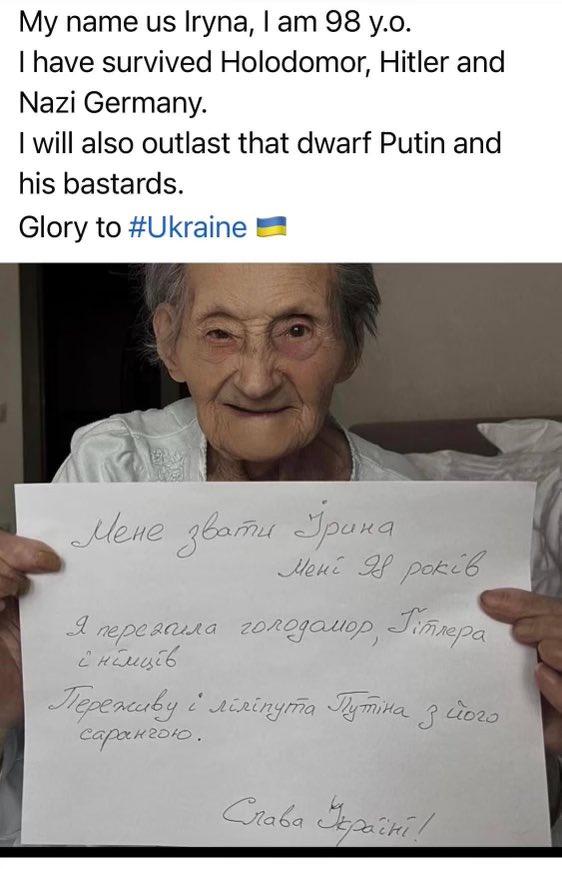 My name us Iryna, I am 98 y.o.
I have survived Holodomor, Hitler and
Nazi Germany.
I will also outlast that dwarf Putin and
his bastards.
Glory to #Ukraine 🇺🇦
Мене звати Ірина
Мені 98 років
Я пережила голодамор, Гітлера
і німців
Переживу і ліліпута Путіна з його
сарангою.
Слава Україні!